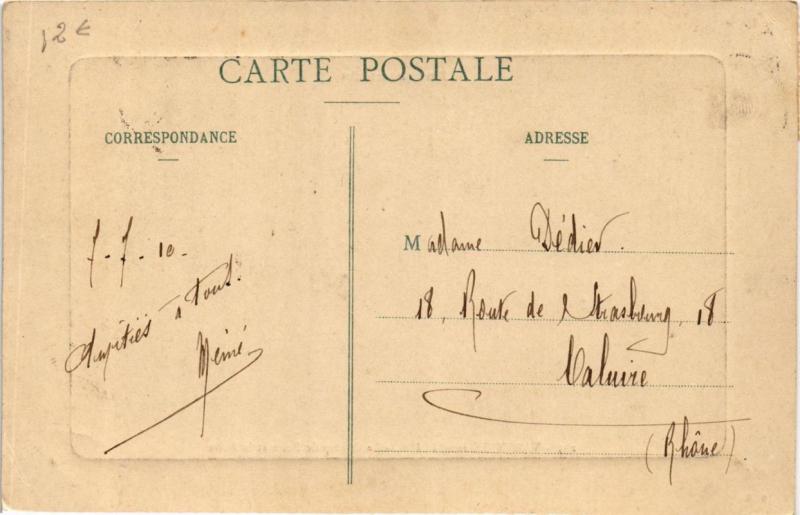 12€
CARTE POSTALE
CORRESPONDANCE
7-7-10-
Amitiés à tous.
Mémé
ADRESSE
Madame Dédier.
18, Route de Strasbourg, 18
Caluire
(Rhône)